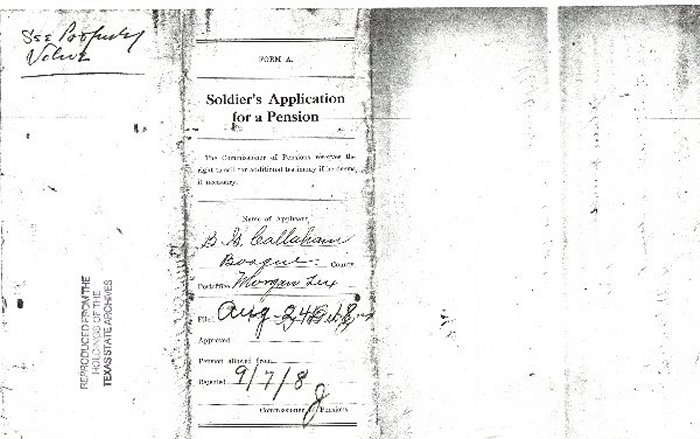 See Property
Value
FORM A.
Soldier's Application
for a Pension
The Commissioner of Pensions reserves the
right to call for additional testimony if he deems
it necessary.
Name of Applicant,
B. G. Callaham
Bosque County
Postoffice Morgan Tex
Filed Aug 24
Approved
Pension allowed from
Rejected 9/7/8
Commissioner of Pensions
REPRODUCED FROM THE
HOLDINGS OF THE
TEXAS STATE ARCHIVES